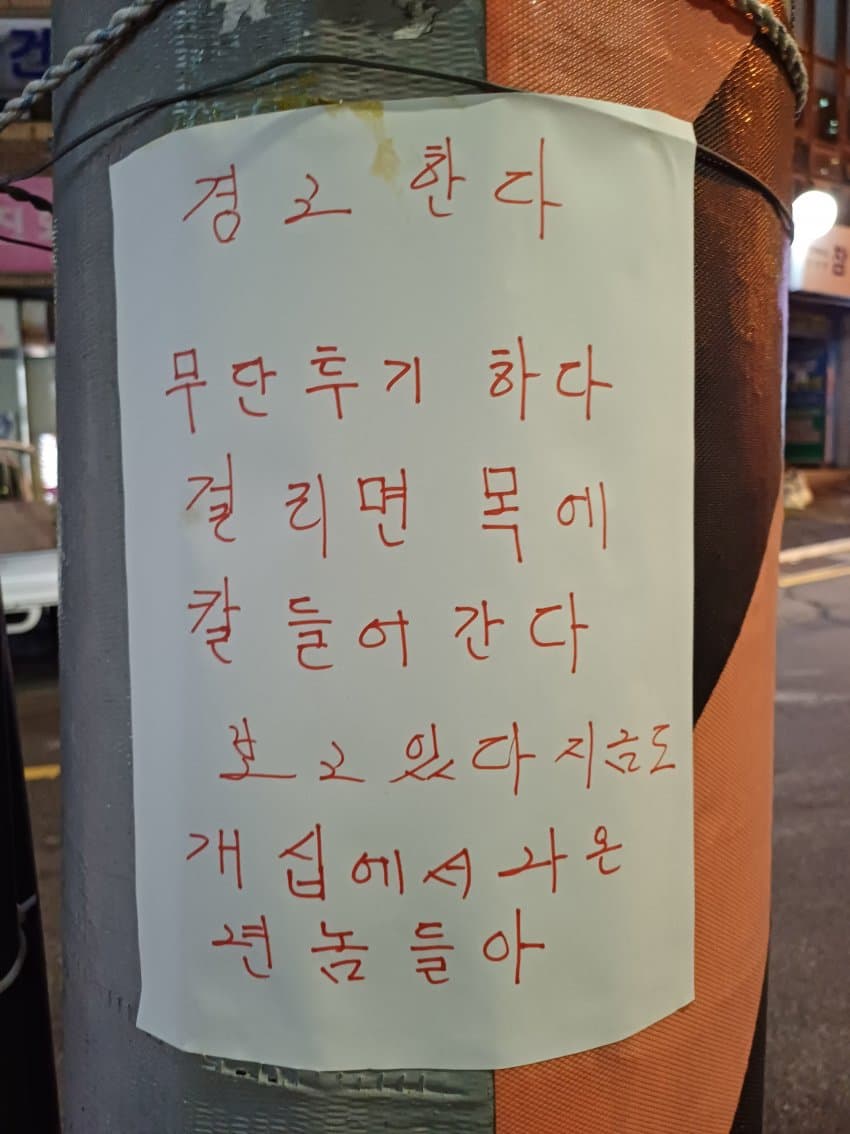 건
경고 한다
무단투기 하다
걸리면 목에
칼 들어 간다
보고 있다 지금도
개십에서 나온
년놈들아